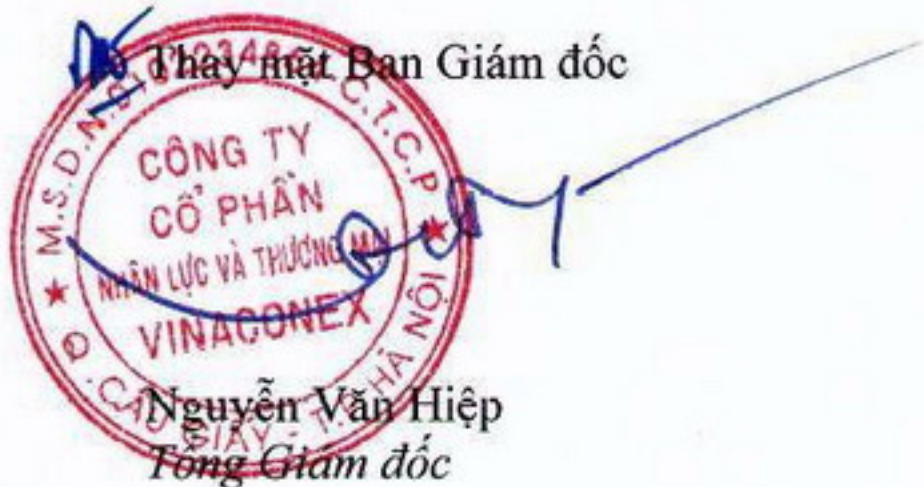 Thay mặt Ban Giám đốc
CÔNG TY
CỔ PHẦN
NHÂN LỰC VÀ THƯƠNG MẠI
VINACONEX
M.S.D.N: C.T.C.P
Q. CẦU GIẤY - T.P HÀ NỘI
Nguyễn Văn Hiệp
Tổng Giám đốc